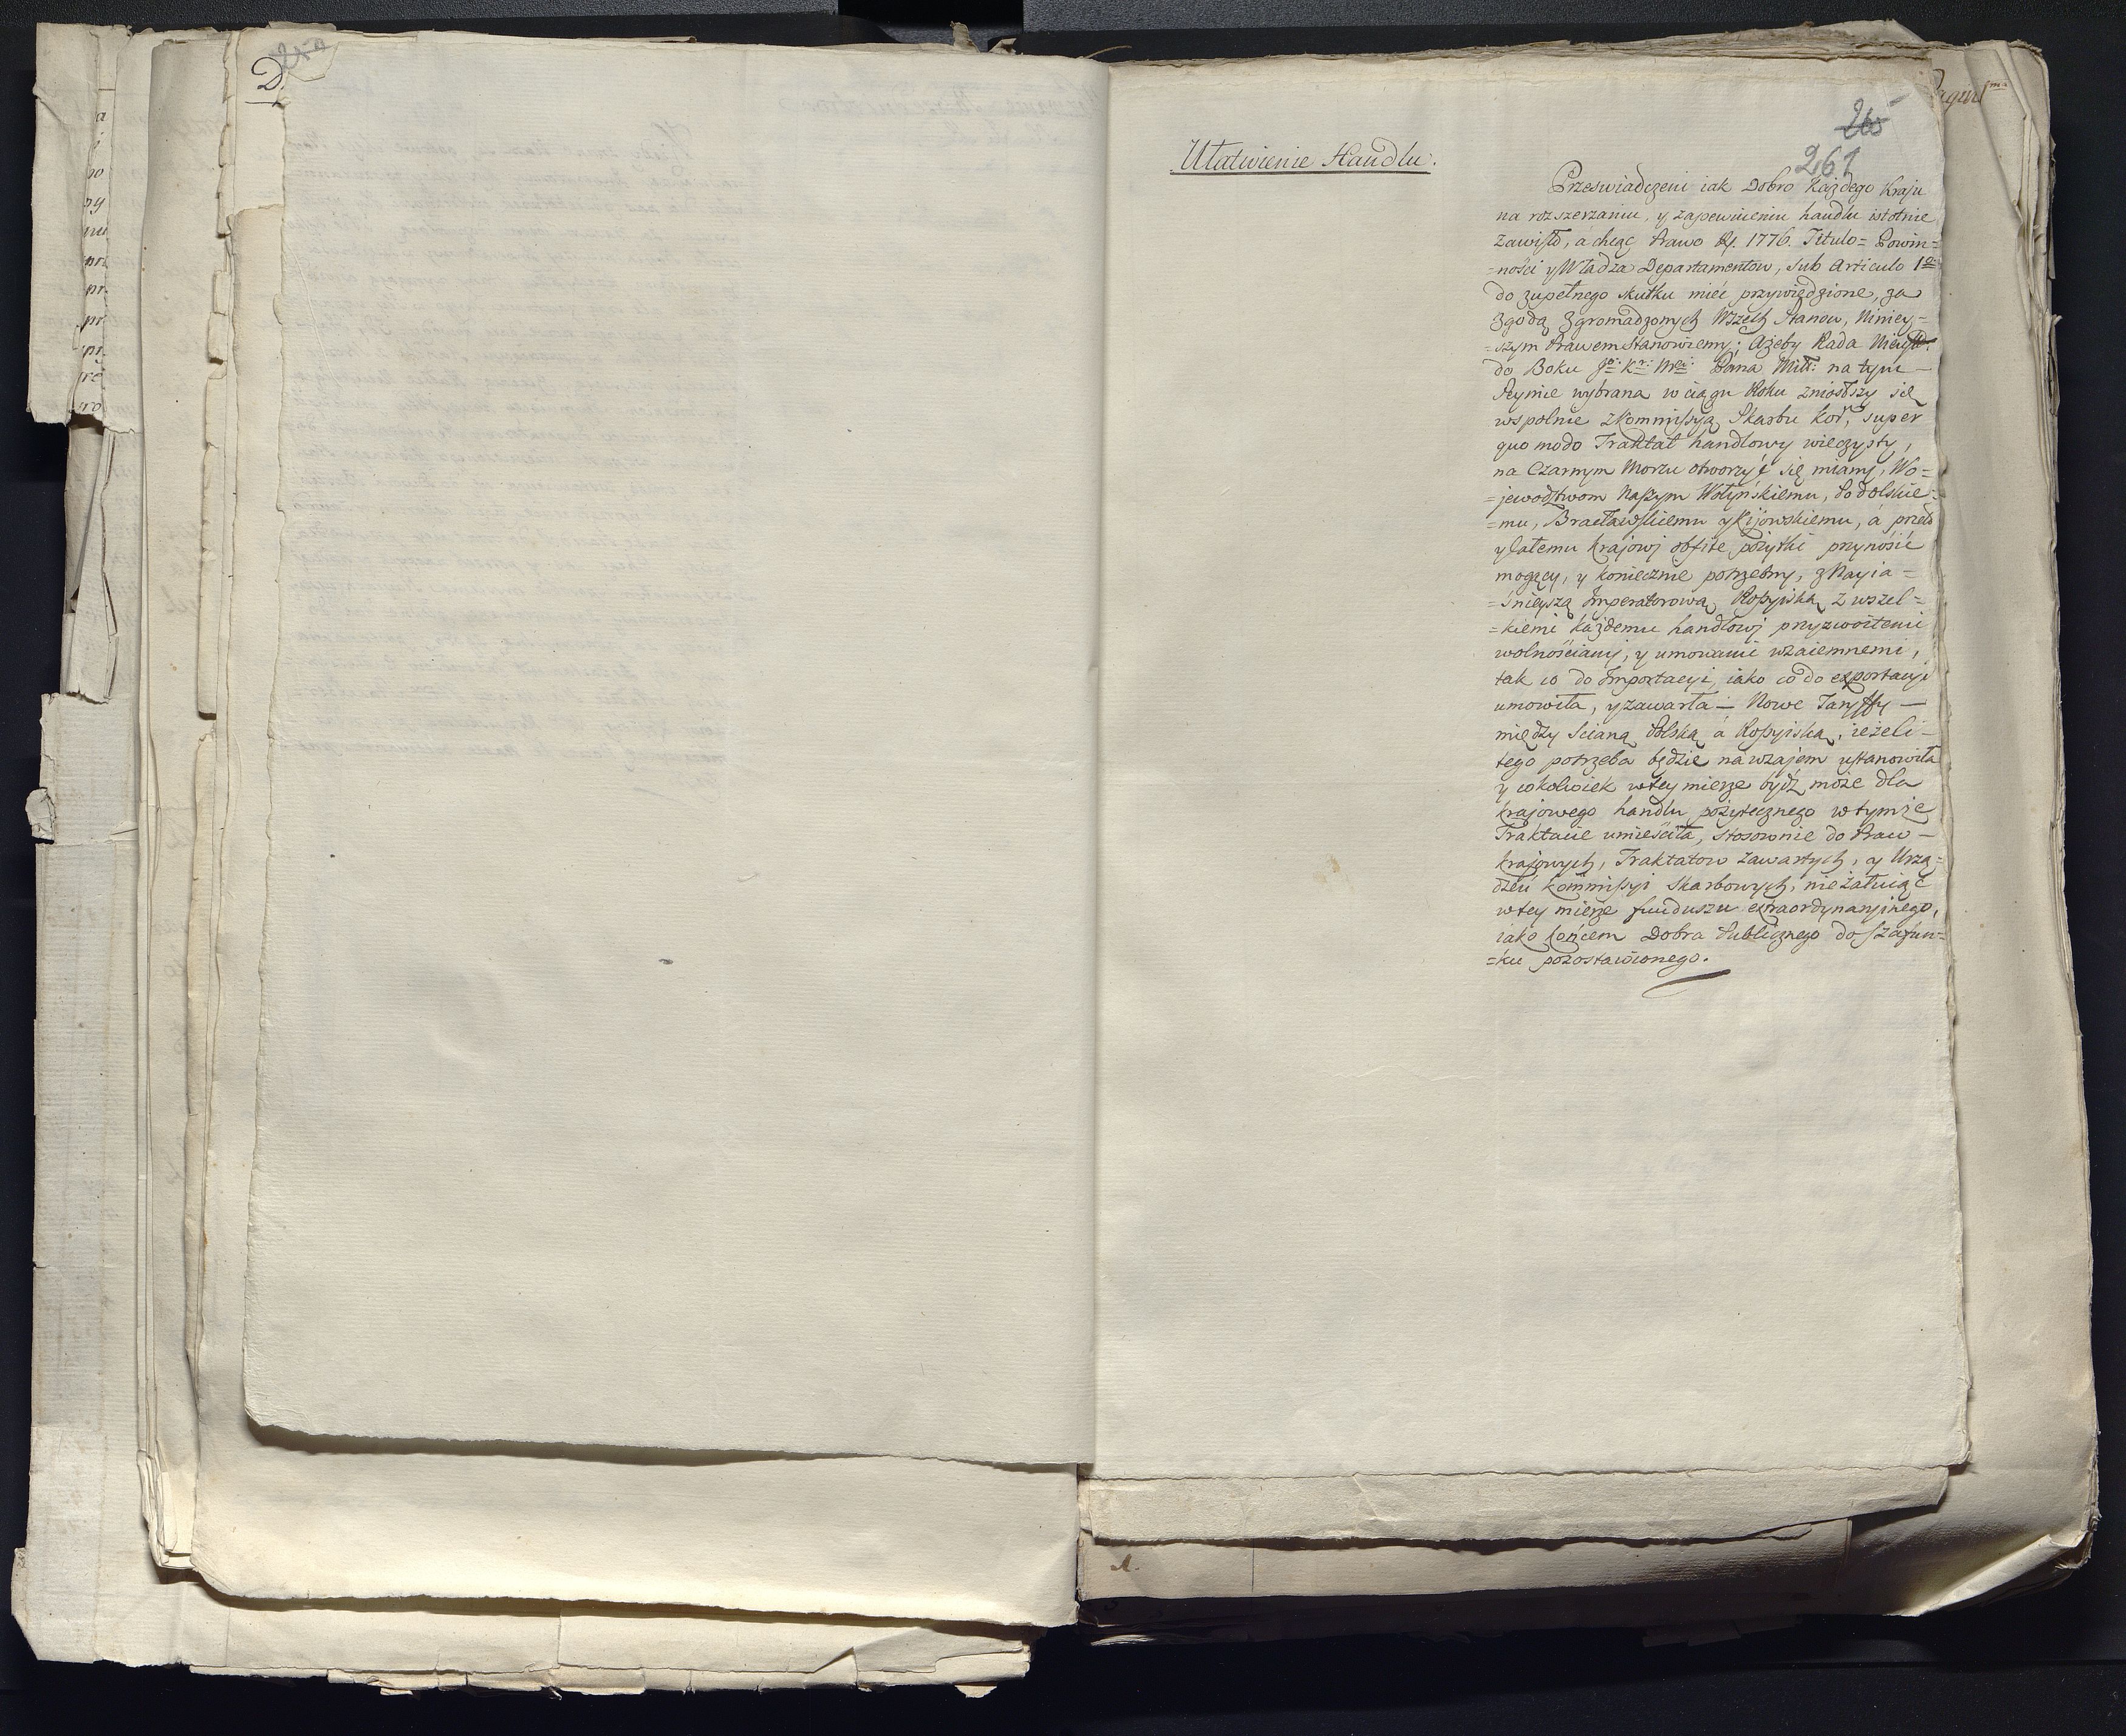 D.
265
261
Ułatwienie Handlu.
Przeswiadczeni iak Dobro każdego Kraju
na rozszerzaniu, y zapewnieniu handlu istotnie
zawisło, a chcąc Prawo Rv. 1776. Titulo= Powin=
=ności y Władza Departamentow, sub Articulo 1o
do zupełnego skutku mieć przywiedzione, za
Zgodą Zgromadzonych Wszech Stanow, Niniey=
=szym Prawem Stanowiemy; Ażeby Rada
do Boku Jo: Kr: Mci: Pana Miłł: na tym —
Seymie wybrana w ciągu Roku zniosłszy się
wspolnie z Kommissyą Skarbu Kor: super
quo modo Traktat handlowy wieczysty,
na Czarnym Morzu otworzyć się miany, Wo=
=jewodztwom Naszym Wołyńskiemu, Podolskie=
=mu, Bracławskiemu y Kijowskiemu, á przeto
y całemu krajowj obfite pożytki przynosić
mogący, y koniecznie potrzebny, z Nayia=
=śnieyszą Imperatorową Rossyiską z wszel=
=kiemi każdemu handlowj przyzwoitemi
wolnościamj, y umowami wzaiemnemi,
tak co do Importacyi, iako co do exportacyi
umowiła, y zawarła — Nowe Taryffy —
między Scianą Polską á Rossyiską, ieżeli —
tego potrzeba będzie nawzajem ustanowiła
y cokolwiek w tey mierze bydź może dla
krajowego handlu pożytecznego w tymże
Traktacie umieściła, stosownie do Praw —
krajowych, Traktatow zawartych, y Urzą=
dzeń Kommissyi Skarbowych, nieżałuiąc
w tey mierze funduszu extraordynaryinego,
iako końcem Dobra Publicznego do szafun=
=ku pozostawionego.
A.